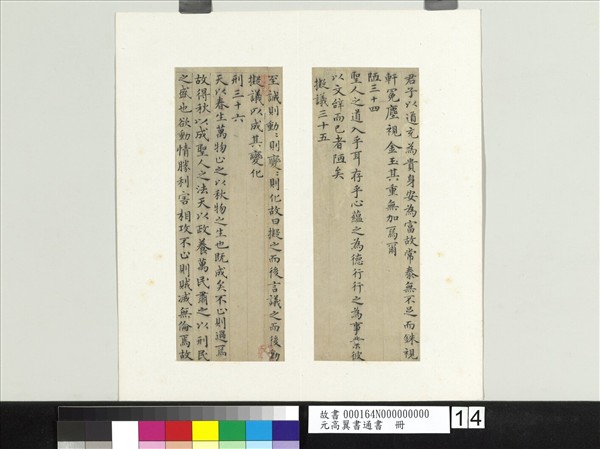 君子以道充為貴身安為富故常泰無不足而銖視
軒冕塵視金玉其重無加焉爾
陋三十四
聖人之道入乎耳存乎心蘊之為德行行之為事業彼
以文辭而已者陋矣
擬議三十五
至誠則動動則變變則化故曰擬之而後言議之而後動
擬議以成其變化
刑三十六
天以春生萬物止之以秋物之生也既成矣不止則過焉
故得秋以成聖人之法天以政養萬民肅之以刑民
之盛也欲動情勝利害相攻不止則賊滅無倫焉故
故書 000164N000000000
元高翼書通書 冊
14